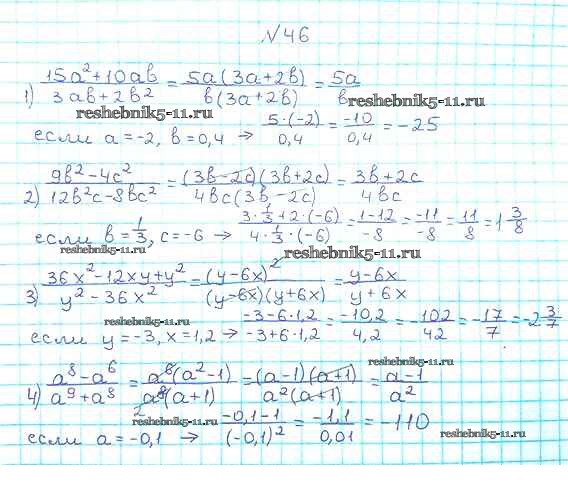 №46
1) (15a²+10ab)/(3ab+2b²) = (5a(3a+2b))/(b(3a+2b)) = 5a/b
reshebnik5-11.ru
reshebnik5-11.ru
если a=-2, b=0,4 → (5·(-2))/0,4 = -10/0,4 = -25
2) (9b²-4c²)/(12b²c-8bc²) = ((3b-2c)(3b+2c))/(4bc(3b-2c)) = (3b+2c)/(4bc)
если b=1/3, c=-6 → (3·1/3+2·(-6))/(4·1/3·(-6)) = (1-12)/-8 = -11/-8 = 11/8 = 1 3/8
reshebnik5-11.ru
reshebnik5-11.ru
3) (36x²-12xy+y²)/(y²-36x²) = (y-6x)²/((y-6x)(y+6x)) = (y-6x)/(y+6x)
reshebnik5-11.ru
если y=-3, x=1,2 → (-3-6·1,2)/(-3+6·1,2) = -10,2/4,2 = -102/42 = -17/7 = -2 3/7
reshebnik5-11.ru
4) (a⁸-a⁶)/(a⁹+a⁸) = (a⁶(a²-1))/(a⁸(a+1)) = ((a-1)(a+1))/(a²(a+1)) = (a-1)/a²
2
reshebnik5-11.ru
если a=-0,1 → (-0,1-1)/(-0,1)² = -1,1/0,01 = -110
reshebnik5-11.ru